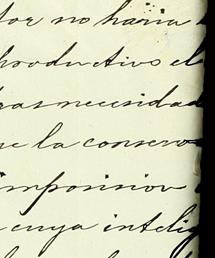 tor no haria
productivo el
ras necesidad
e la conserv
imposision
cuya intelig